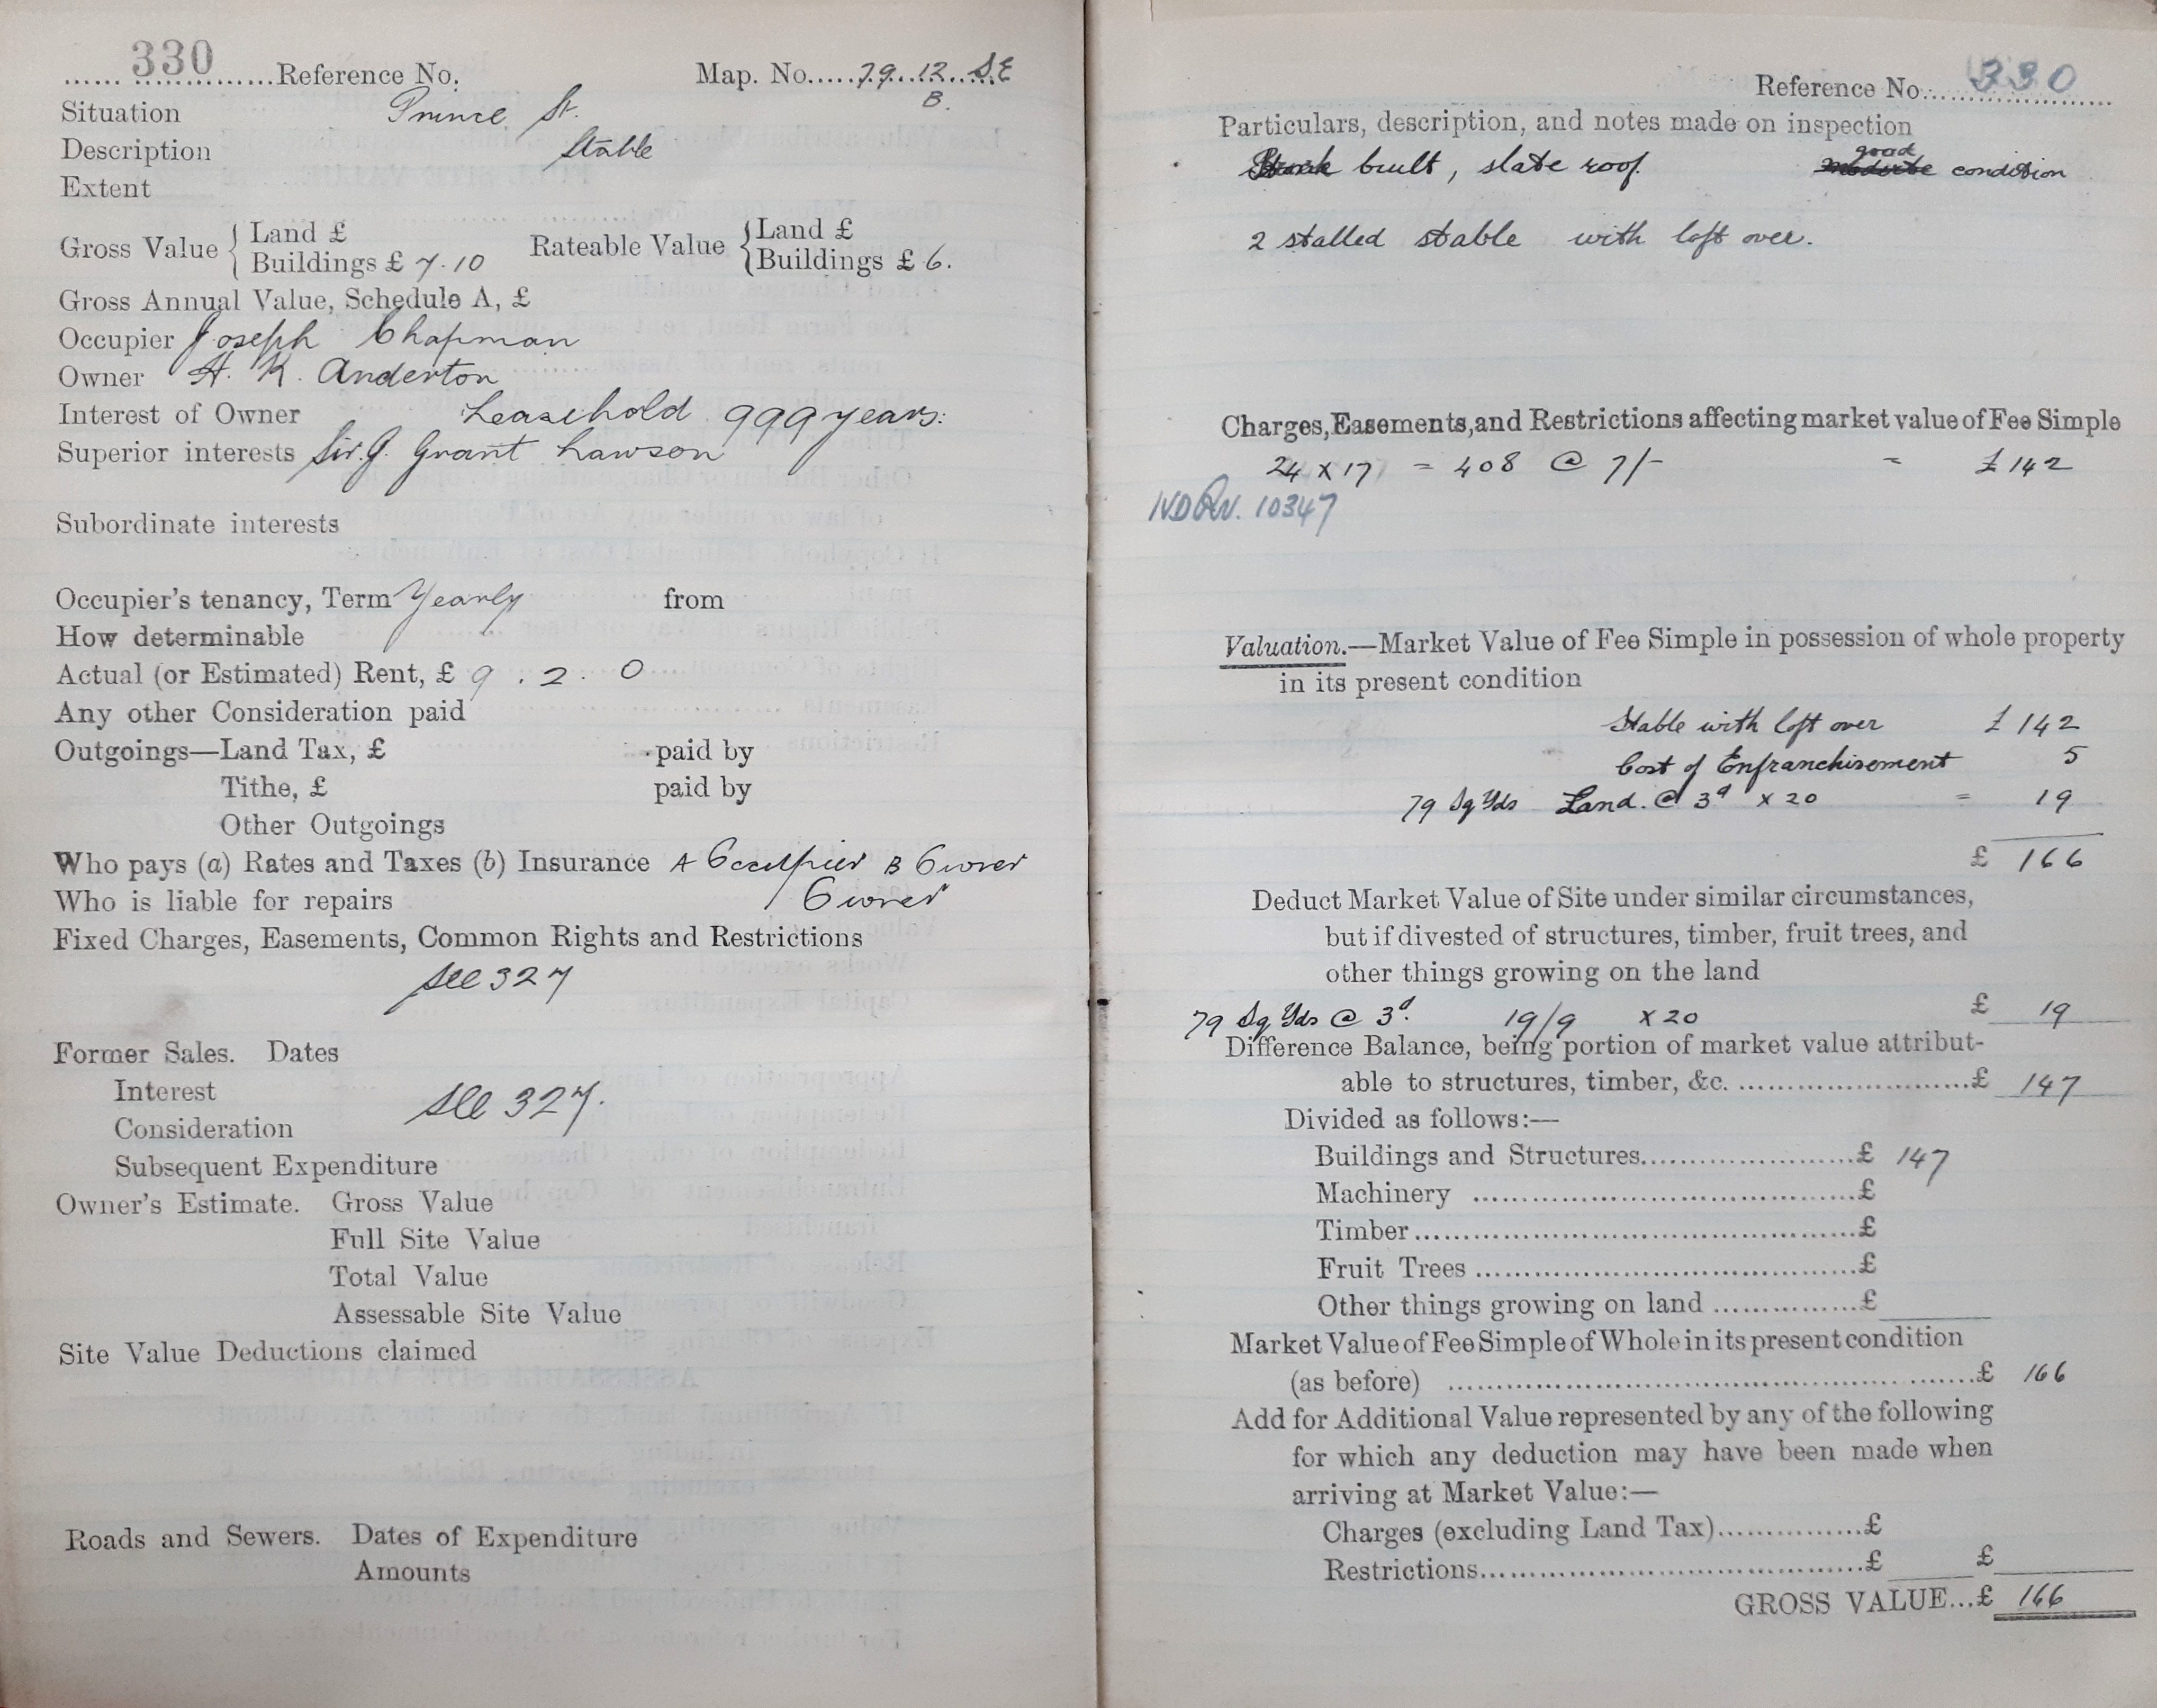 330 Reference No. Map. No. 79.12. S.E
B.
Situation Prince St.
Description Stable
Extent
Gross Value { Land £ Rateable Value { Land £
Buildings £ 7.10 Buildings £ 6.
Gross Annual Value, Schedule A, £
Occupier Joseph Chapman
Owner H. K. Anderton
Interest of Owner Leasehold 999 years.
Superior interests Sir. J. Grant Lawson
Subordinate interests
Occupier's tenancy, Term Yearly from
How determinable
Actual (or Estimated) Rent, £ 9 . 2 . 0
Any other Consideration paid
Outgoings—Land Tax, £ paid by
Tithe, £ paid by
Other Outgoings
Who pays (a) Rates and Taxes (b) Insurance A Occupier B Owner
Who is liable for repairs Owner
Fixed Charges, Easements, Common Rights and Restrictions
See 327
Former Sales. Dates
Interest
See 327.
Consideration
Subsequent Expenditure
Owner's Estimate. Gross Value
Full Site Value
Total Value
Assessable Site Value
Site Value Deductions claimed
Roads and Sewers. Dates of Expenditure
Amounts
Reference No. 330
Particulars, description, and notes made on inspection
good
built, slate roof. moderate condition
2 stalled stable with loft over.
Charges, Easements, and Restrictions affecting market value of Fee Simple
24 x 17 = 408 @ 7/- = £ 142
10347
Valuation.—Market Value of Fee Simple in possession of whole property
in its present condition
Stable with loft over £ 142
Cost of Enfranchisement 5
79 Sq Yds Land. @ 3d x 20 = 19
£ 166
Deduct Market Value of Site under similar circumstances,
but if divested of structures, timber, fruit trees, and
other things growing on the land
79 Sq Yds @ 3d. 19/9 x 20 £ 19
Difference Balance, being portion of market value attribut-
able to structures, timber, &c. £ 147
Divided as follows:—
Buildings and Structures £ 147
Machinery £
Timber £
Fruit Trees £
Other things growing on land £
Market Value of Fee Simple of Whole in its present condition
(as before) £ 166
Add for Additional Value represented by any of the following
for which any deduction may have been made when
arriving at Market Value:—
Charges (excluding Land Tax) £
Restrictions £ £
GROSS VALUE...£ 166